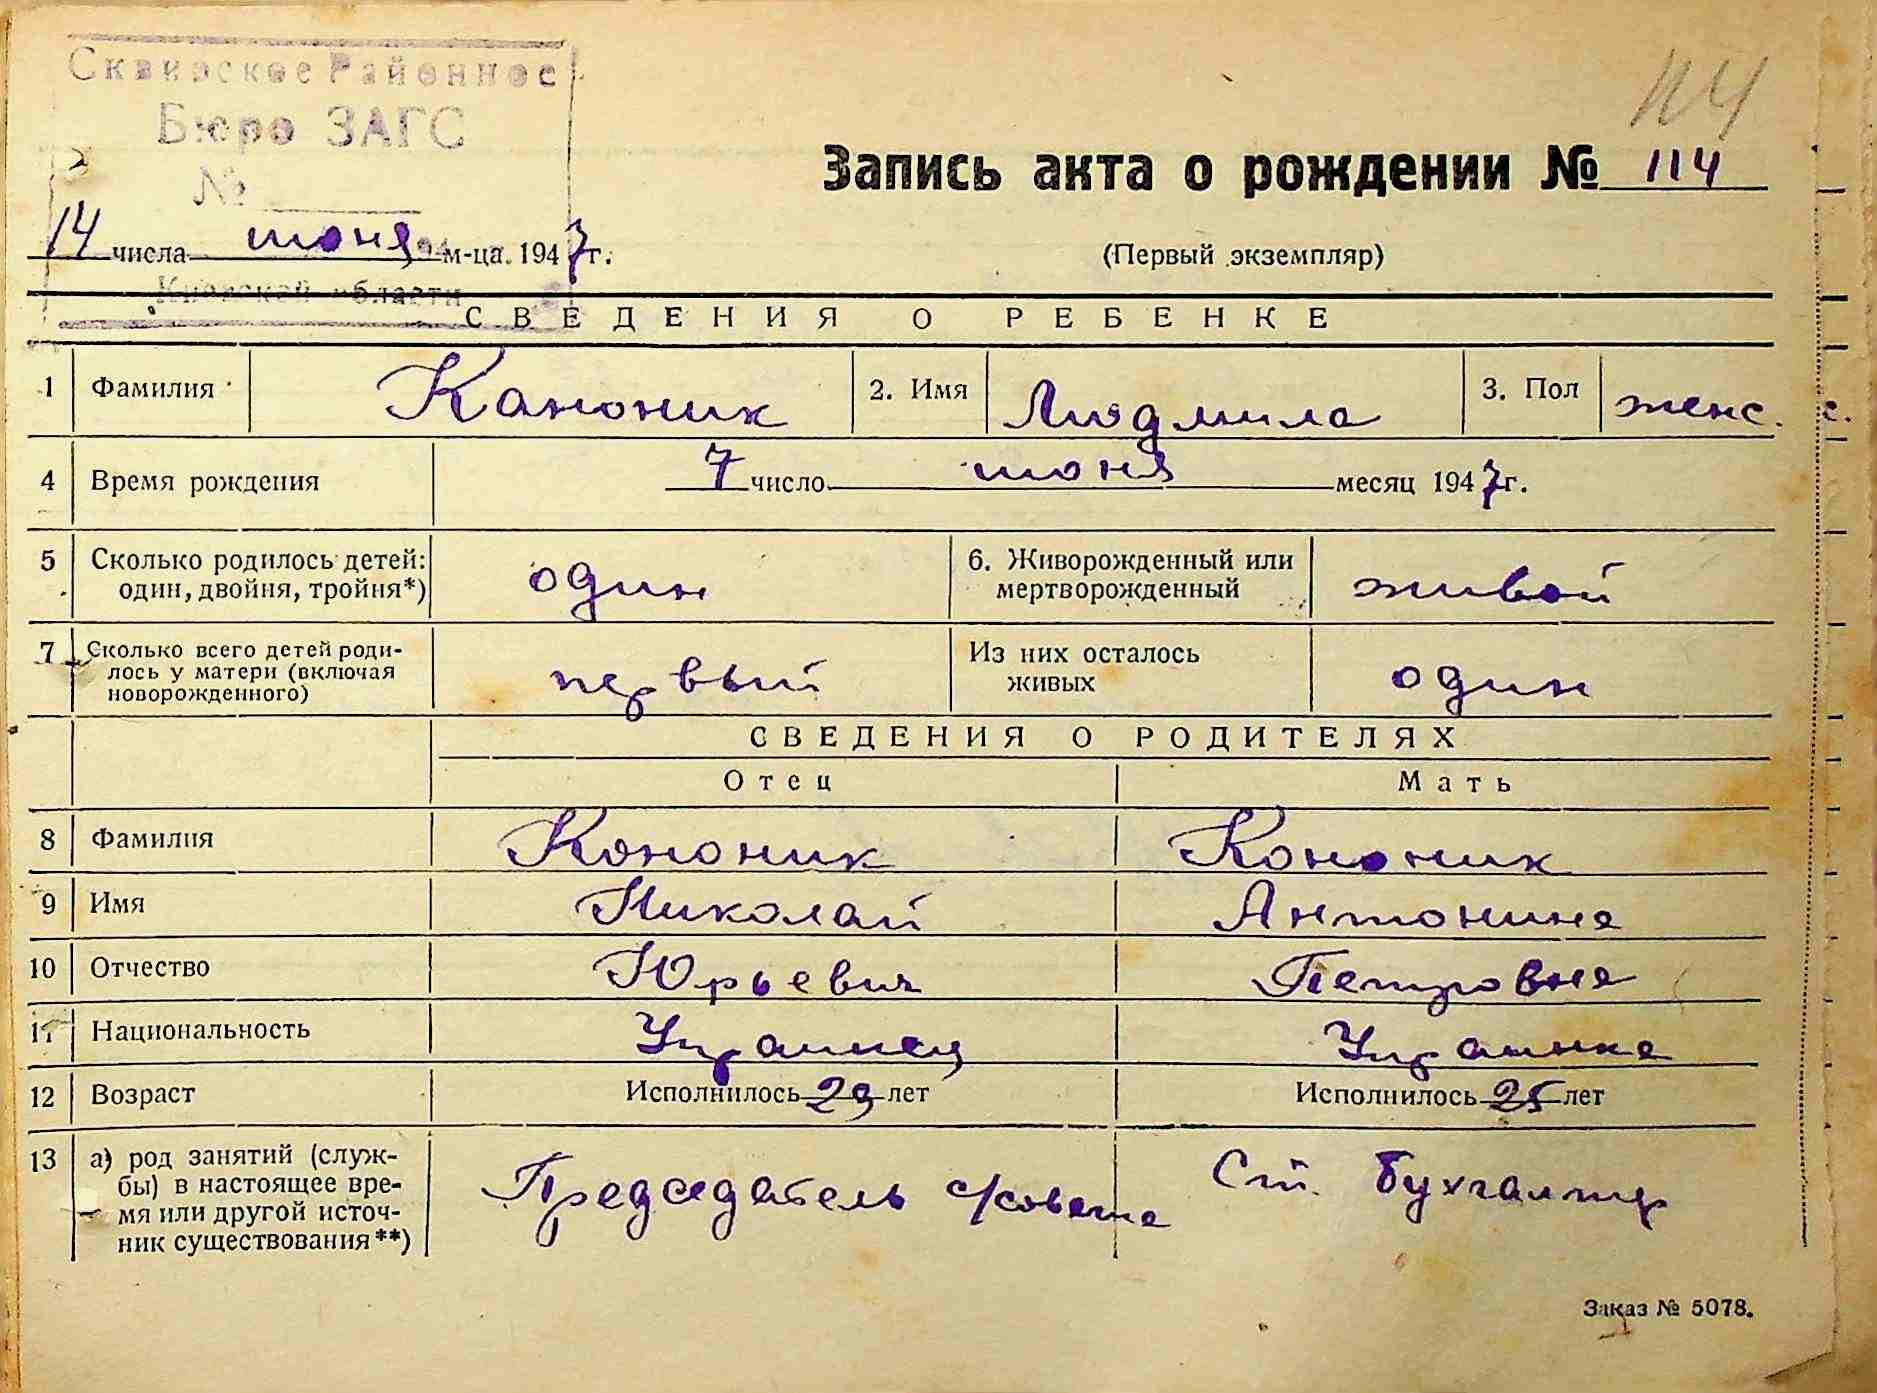 Сквирское Районное
Бюро ЗАГС
№
114
Запись акта о рождении № 114
14 числа июня м-ца. 1947 г.
(Первый экземпляр)
Киевской области
СВЕДЕНИЯ О РЕБЕНКЕ
1 Фамилия Каноник 2. Имя Людмила 3. Пол женс.
4 Время рождения 7 число июня месяц 1947 г.
5 Сколько родилось детей: один, двойня, тройня*) один 6. Живорожденный или мертворожденный живой
7 Сколько всего детей родилось у матери (включая новорожденного) первый Из них осталось живых один
СВЕДЕНИЯ О РОДИТЕЛЯХ
Отец Мать
8 Фамилия Кононик Кононик
9 Имя Николай Антонина
10 Отчество Юрьевич Петровна
11 Национальность Украинец Украинка
12 Возраст Исполнилось 29 лет Исполнилось 25 лет
13 а) род занятий (служ-
бы) в настоящее вре-
мя или другой источ-
ник существования**)
Председатель с/совета Ст. бухгалтер
Заказ № 5078.